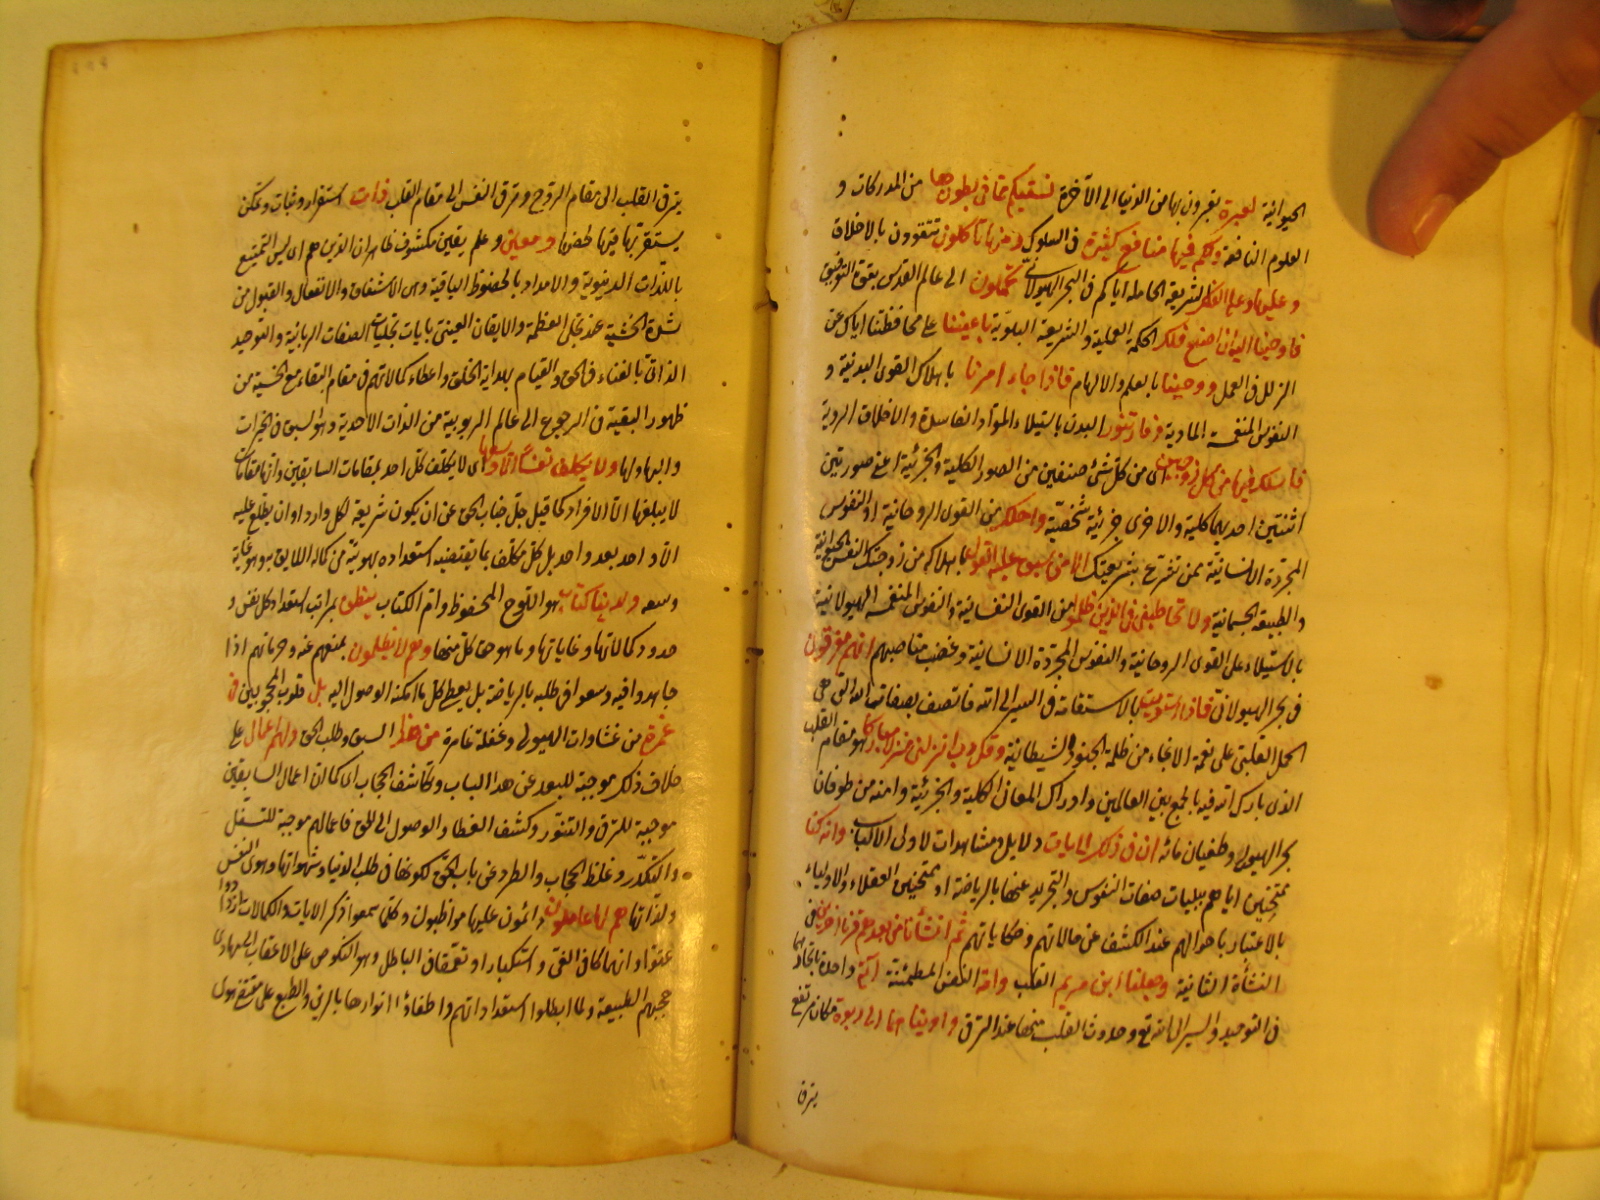 الحيوانية لعبرة يعبرون بها من الدنيا الى الآخرة نسقيكم مما فى بطونها من المدركات و
العلوم النافعة ولكم فيها منافع كثيرة فى السلوك ومنها تأكلون تتقوون بالاخلاق
وعليها وعلى الفلك الشريعة الحاملة اياكم فى البحر الهيولانى تحملون الى عالم القدس بقوة التوفيق
فاوحينا اليه ان اصنع فلك الحكمة العملية والشريعة النبوية باعيننا على محافظتنا اياك عن
الزلل فى العمل ووحينا بالعلم والالهام فاذا جاء امرنا باهلاك القوى البدنية و
النفوس المنغمسة المادية وفار تنور البدن باستيلاء المواد الفاسدة والاخلاق الردية
فاسلك فيها من كل زوجين اى من كل شئ صنفين من الصور الكلية والجزئية اعنى صورتين
اثنتين احديهما كلية والاخرى جزئية شخصية واهلك من القوى الروحانية او النفوس
المجردة الانسانية ممن تشرع بشريعتك الا من سبق عليه القول بما هلاكه من زوجتك النفس الحيوانية
والطبيعة الجسمانية ولا تخاطبنى فى الذين ظلموا من القوى النفسانية والنفوس المنغمسة الهيولانية
بالاستيلاء على القوى الروحانية والنفوس المجردة الانسانية وغضب مناصبهم انهم مغرقون
فى بحر الهيولانى فاذا استويت بالاستقامة فى السير الى الله فاتصف بصفات الله التى هى
الحمد القلبى على نعمة الانجاء من ظلمة الجنود الشيطانية وقل رب انزلنى منزلا مباركا هو مقام القلب
الذى بارك الله فيه بالجمع بين العالمين وادراك المعانى الكلية والجزئية وامنه من طوفان
بحر الهيولى وطغيان مائه ان فى ذلك لايات دلايل ومشاهدات لاولى الالباب وان كنا
ممتحنين اياهم ببليات صفات النفوس والتجريد عنها بالرياضة او ممتحنين العقلاء والاولياء
بالاعتبار باحوالهم عند الكشف عن حالاتهم وحكاياتهم ثم انشأنا من بعدهم قرنا اخرين فى
النشأة الثانية وجعلنا ابن مريم القلب وامه النفس المطمئنة آية واحدة باتحادهما
فى التوحيد والسير الى الله تع وحدوث القلب منها عند الترقى واويناهما الى ربوة مكان مرتفع
بترقى
بترقى القلب الى مقام الروح وترقى النفس الى مقام القلب ذات استقرار وثبات وتمكن
يستقر بها فيها لخصبها ومعين وعلم يقين مكشوف ظاهر ان الذين هم اى ليس التمتيع
باللذات الدنيوية والامداد بالحظوظ الباقية وهى الاشفاق والانفعال والقبول من
شدة الخشية عند تجلى العظمة والايقان العينى بايات تجليات الصفات الربانية والتوحيد
الذاتى بالفناء فى الحق والقيام بهداية الخلق واعطاء كمالاتهم فى مقام البقاء مع الخشية من
ظهور البقية فى الرجوع الى عالم الربوبية من الذات الاحدية وهو السبق فى الخيرات
واليها ولها ولا يكلف نفسا الا وسعها اى لا يكلف كل احد بمقامات السابقين وانها مقامات
لا يبلغها الا الافراد كما قيل جل جناب الحق عن ان يكون شريعة لكل وارد او ان يطلع عليه
الا واحد بعد واحد بل كل مكلف بما يقتضيه استعداده بهويته من كماله اللايق به وهو غاية
وسعه ولدينا كتاب هو اللوح المحفوظ وام الكتاب ينطق بمراتب استعداد كل نفس و
حدود كمالاتها وغاياتها وما هو حق كل منها وهم لا يظلمون بمنعهم عنه وحرمانهم اذا
جاهدوا فيه وسعوا فى طلبه بالرياضة بل يعطى كل ما امكنه الوصول اليه بل قلوب المحجوبين فى
غمرة من غشاوات الهيولى وغفلة غامرة من هذا السبق وطلب الحق ولهم اعمال على
خلاف ذلك موجبة للبعد عن هذا الباب وتكاثف الحجاب اى كما ان اعمال السابقين
موجبة للترقى والتنور وكشف الغطاء والوصول الى الحق فاعمالهم موجبة للتسفل
والتكدر وغلظ الحجاب والطرد عن باب الحق لكونها فى طلب الدنيا وشهواتها وهوى النفس
ولذاتها هم لها عاملون دائمون عليها مواظبون وكلما سمعوا ذكر الايات والكمالات ازدادوا
عتوا وانهماكا فى الغى واستكبارا وتعمقا فى الباطل وهو النكوص على الاعقاب الى مهاوى
جحيم الطبيعة ولما ابطلوا استعداداتهم واطفاؤا انوارها بالرين والطبع على مقتضى هوى